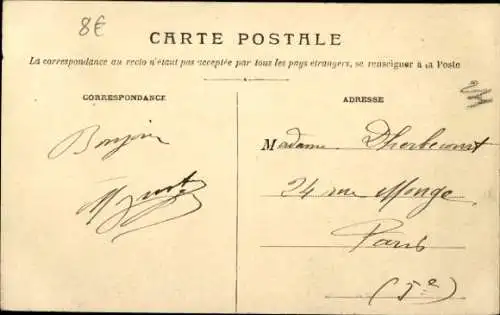 8€
CARTE POSTALE
La correspondance au recto n'étant pas acceptée par tous les pays étrangers, se renseigner à la Poste
CORRESPONDANCE
Bonjour
ADRESSE
Madame Dherbecourt
24 rue Monge
Paris
(5e)